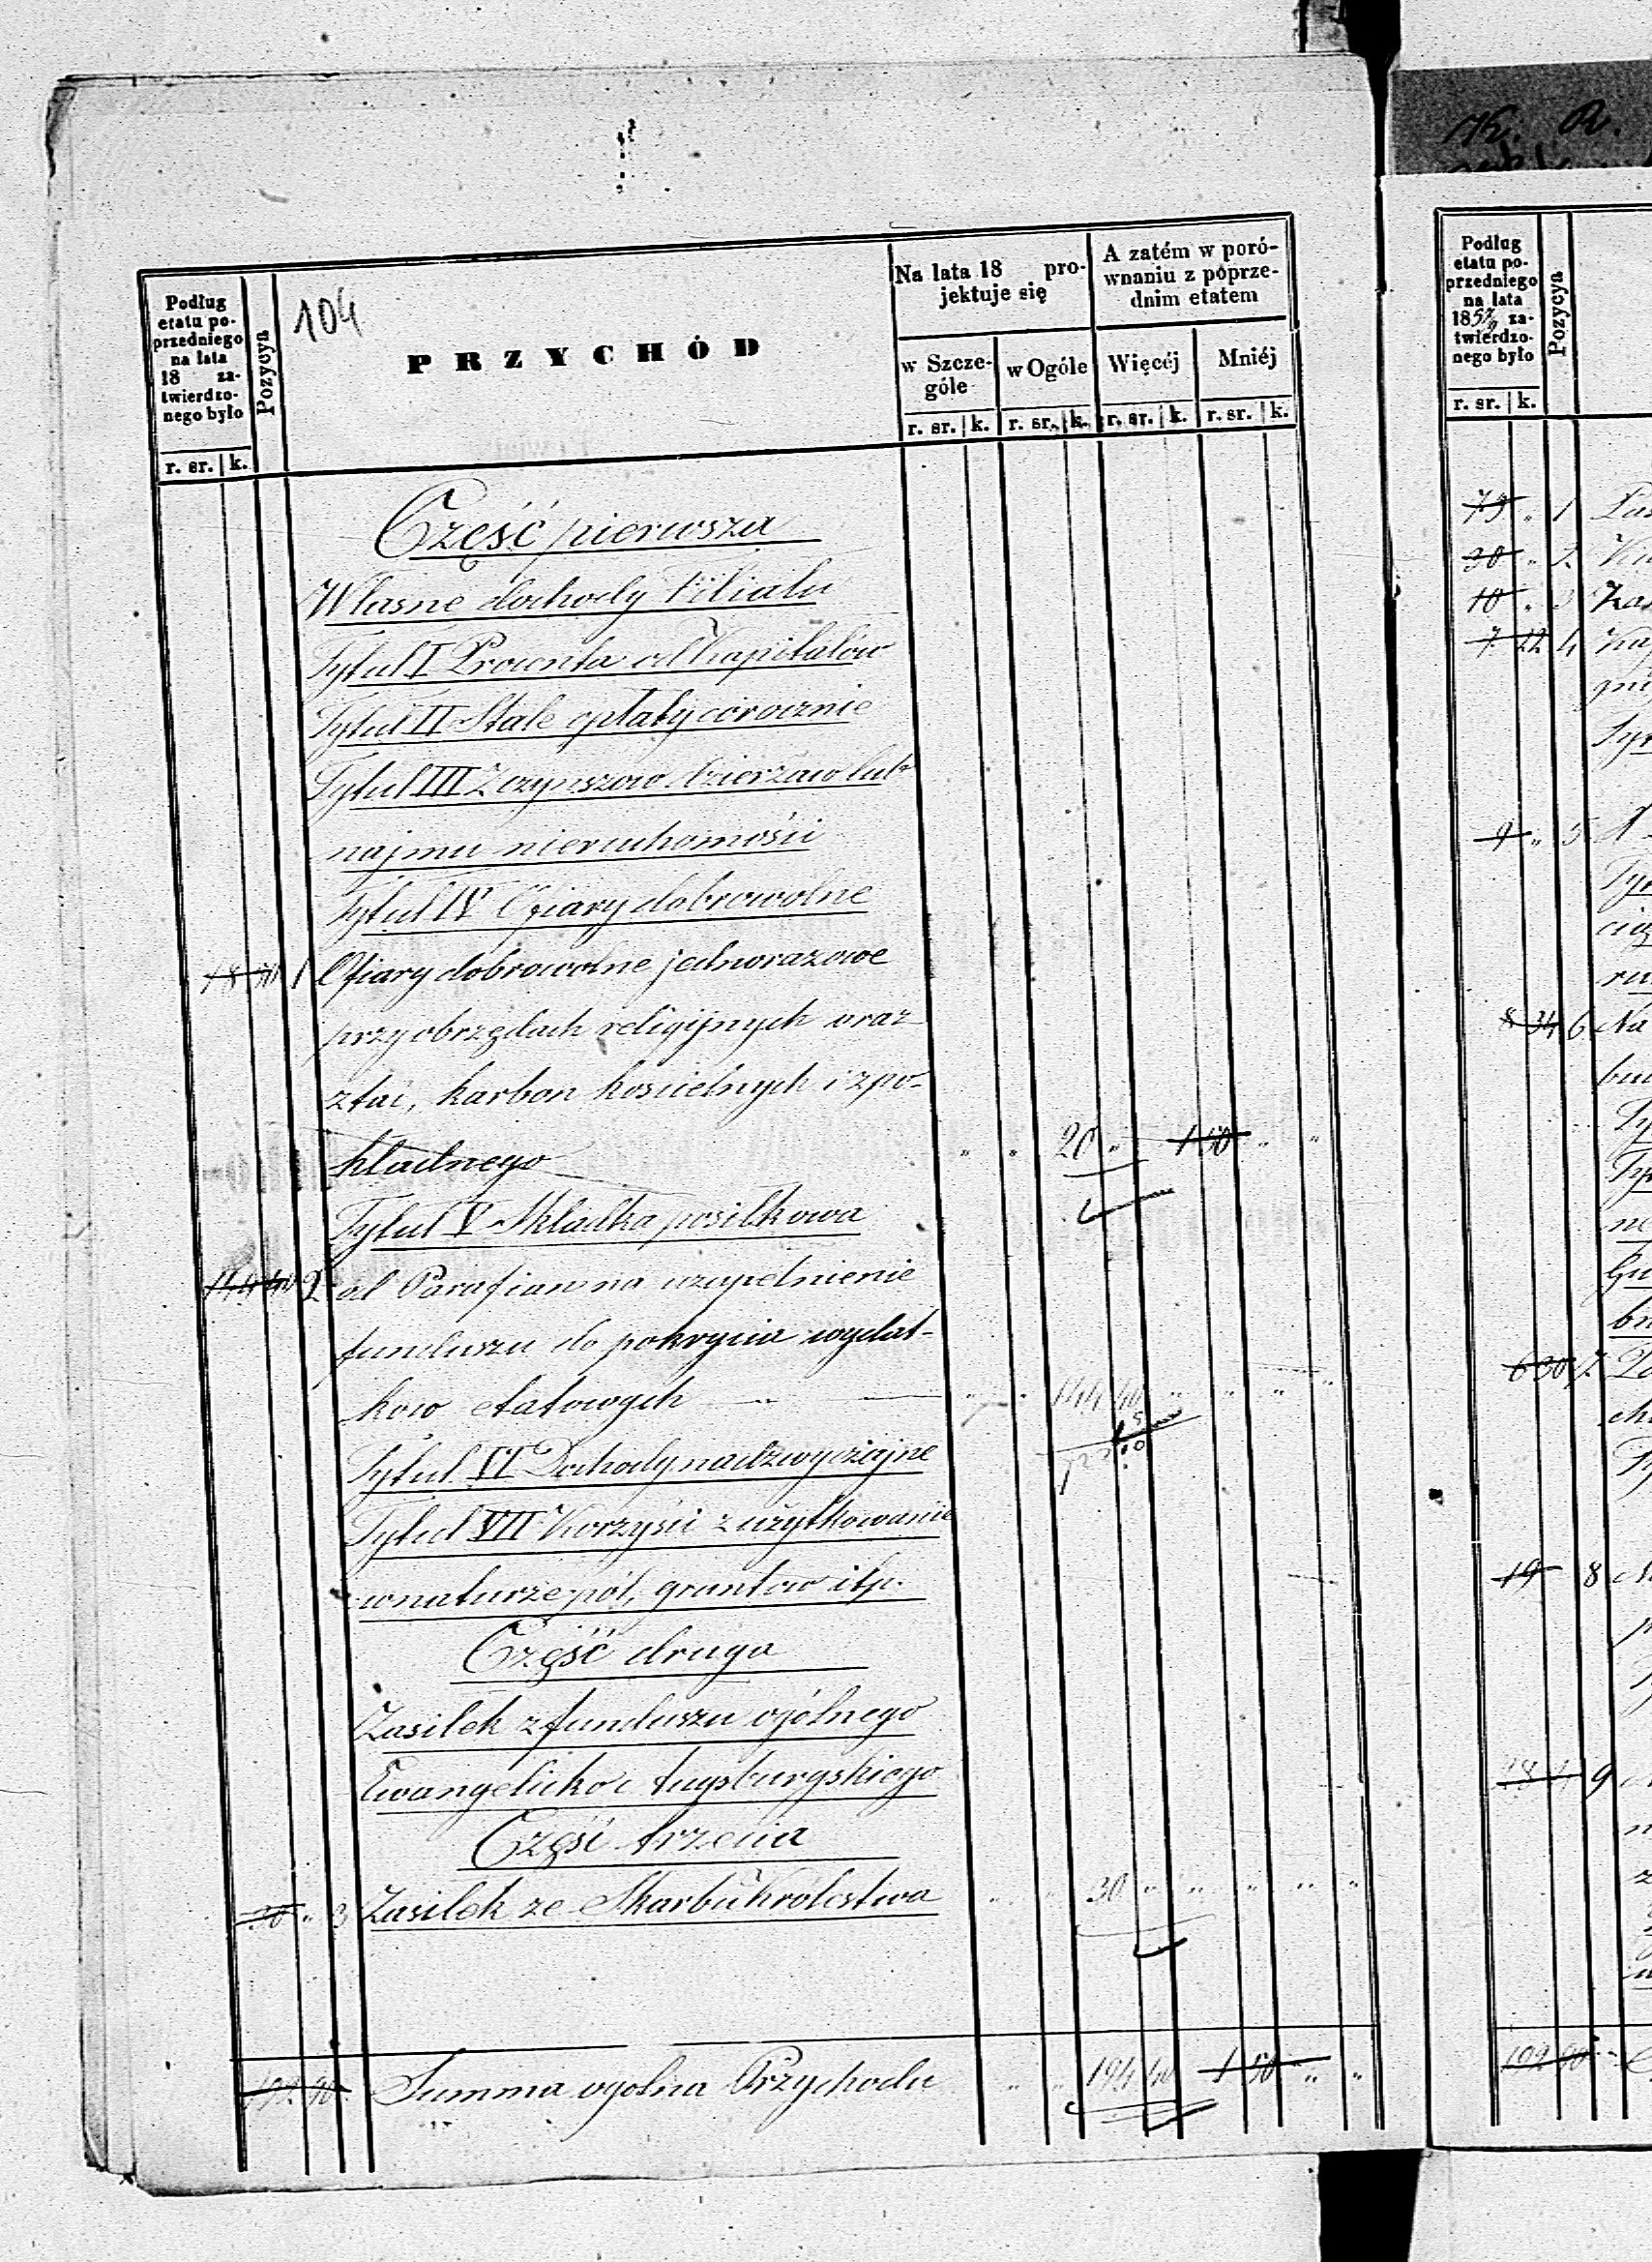 104
Podług etatu poprzedniego na lata 18 zatwierdzonego było
Pozycya
PRZYCHÓD
Na lata 18 projektuje się
A zatém w porównaniu z poprzednim etatem
w Szczególe
w Ogóle
Więcéj
Mniéj
r. sr. k.
r. sr. k. r. sr. k. r. sr. k. r. sr. k.
Część pierwsza
Własne dochody filiału
Tytuł I Procenta od Kapitałów
Tytuł II Stałe opłaty corocznie
Tytuł III Z czynszow dzierzaw lub
najmu nieruchomości
Tytuł IV Ofiary dobrowolne
18 50 1 Ofiary dobrowolne jednorazowe
przy obrzędach religijnych oraz
z tac, karbon kościelnych i z po-
kładnego " " 20 " 1 50 " "
Tytuł V Składka posiłkowa
144 40 2 od Parafian na uzupełnienie
funduszu do pokrycia wydat-
kow etatowych " " 144 40 " " " "
Tytuł VI Dochody nadzwyczajne
Tytuł VII Korzyści z użytkowania
w naturze pól, gruntow itp.
Część druga
Zasiłek z funduszu ogólnego
Ewangelicko Augsburgskiego
Część trzecia
30 " 3 Zasiłek ze Skarbu Królestwa " " 30 " " " " "
192 90 Summa ogolna Przychodu " " 194 40 1 50 " "
K. R.
Podług etatu poprzedniego na lata 1857/9 zatwierdzonego było
Pozycya
r. sr. k.
75 " 1
30 " 2
10 " 3
7 22 4
9 " 5
8 34 6 Na
6 30 7
19 8
9
192 90